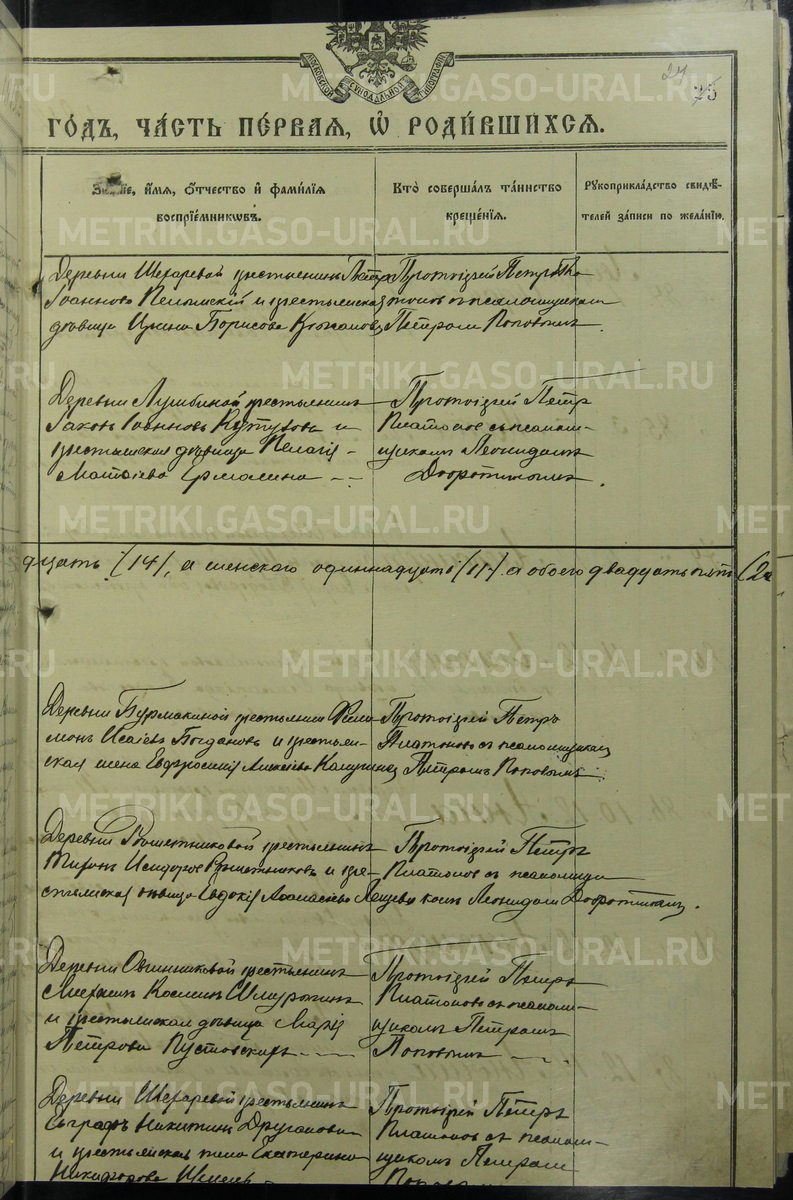 27
75
МОСКОВСКОЙ СѴНОДАЛЬНОЙ ТИПОГРАФІИ
ГОДЪ, ЧАСТЬ ПЕРВАЯ, Ѡ РОДИВШИХСЯ.
Званіе, имя, отчество и фамилія воспріемниковъ.
Кто совершалъ таинство крещенія.
Рукоприкладство свидѣтелей записи по желанію.
Деревни Шегаревой крестьянинъ Петръ
Іоанновъ Пелымскій и крестьянская
дѣвица Ирина Борисова
Протоіерей Петръ Пла-
тоновъ съ псаломщикомъ
Петромъ Поповымъ.
Деревни крестьянинъ
Іаковъ Іоанновъ Кутузовъ и
крестьянская дѣвица Пелагія
Матѳіева Ермолина
Протоіерей Петръ
Платоновъ съ псалом-
щикомъ Леонидомъ
Добротинымъ.
дцать (14), а женскаго одиннадцать (11) а обоего двадцать пять (2
Деревни Бурмакиной крестьянинъ Фили-
монъ Исаіевъ Богдановъ и крестьян-
ская жена Евфросинія Алексіева
Протоіерей Петръ
Платоновъ съ псаломщикомъ
Петромъ Поповымъ.
Деревни Рѣшетниковой крестьянинъ
Тихонъ Исидоровъ Рѣшетниковъ и кре-
стьянская дѣвица Евдокія Аѳанасіева
Протоіерей Петръ
Платоновъ съ псаломщи-
комъ Леонидомъ Добротинымъ.
Деревни Овчинниковой крестьянинъ
Космин
и крестьянская дѣвица Марія
Петрова Пустовскихъ
Протоіерей Петръ
Платоновъ съ псалом-
щикомъ Петромъ
Поповымъ
Деревни Шегаревой крестьянинъ
Евграфъ Никитинъ
и крестьянская жена Екатерина
Никифорова
Протоіерей Петръ
Платоновъ съ псалом-
щикомъ Петромъ
METRIKI.GASO-URAL.RU